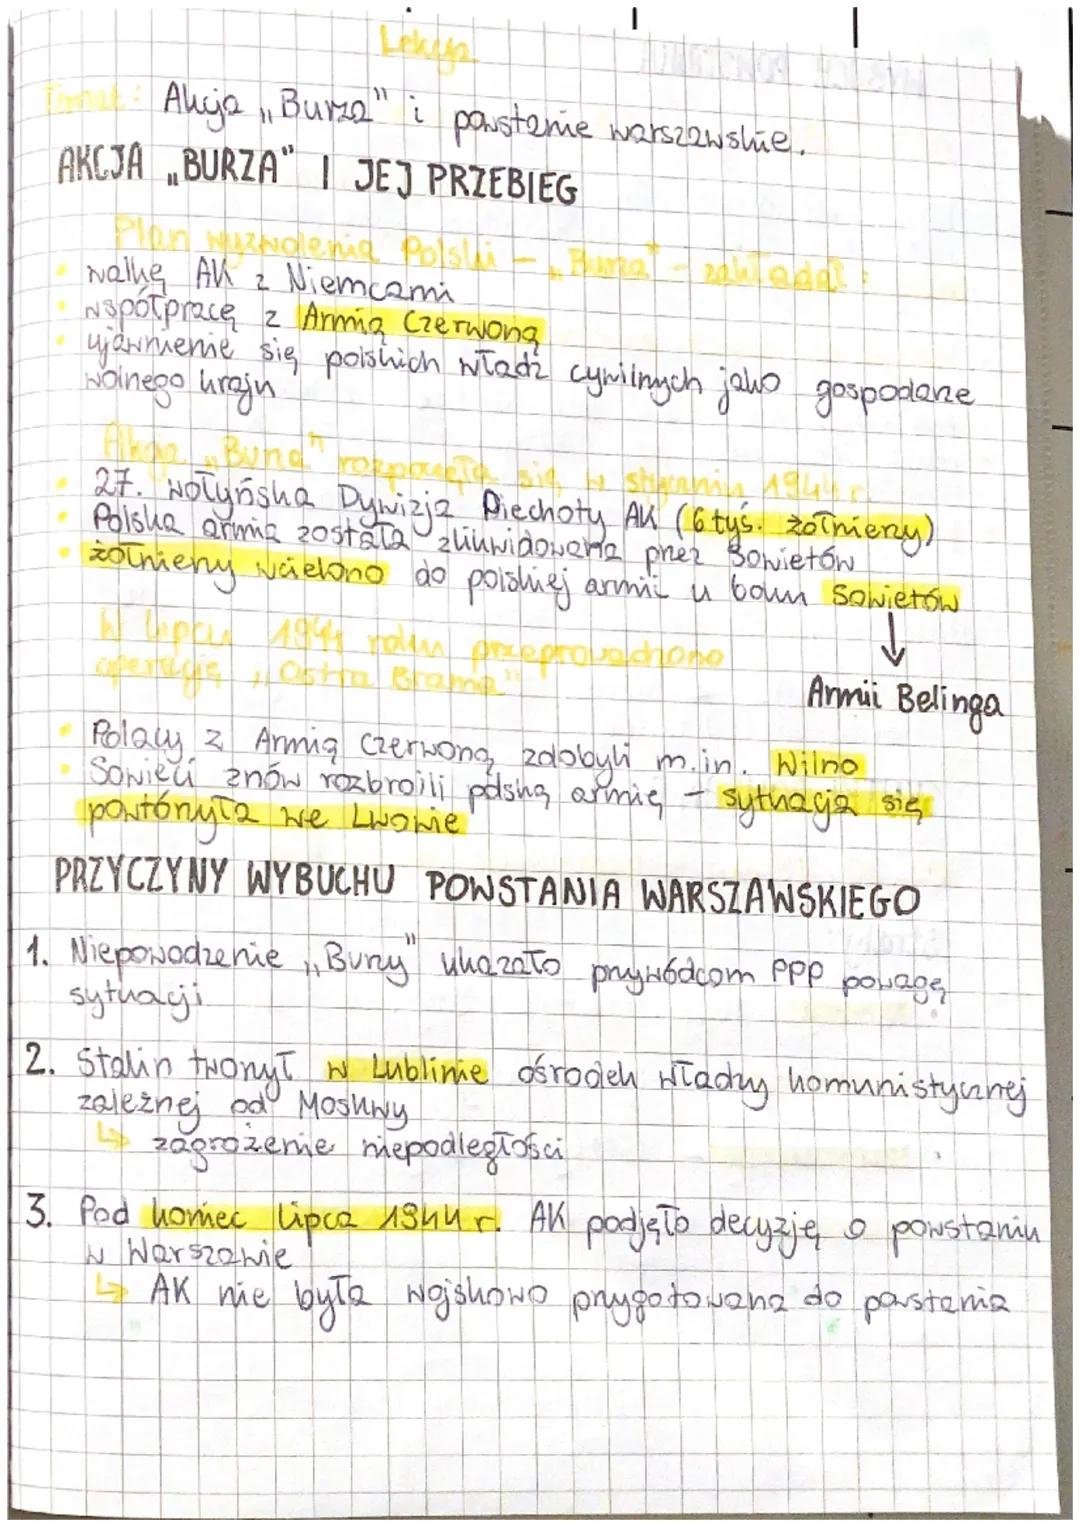 Lekcja
Temat: Akcja „Burza" i powstanie warszawskie.
AKCJA „BURZA" I JEJ PRZEBIEG
Plan wyzwolenia Polski - „Burza" - zakładał:
• walkę AK z Niemcami
• współpracę z Armią Czerwoną
• ujawnienie się polskich władz cywilnych jako gospodarze
wolnego kraju
Akcja „Burza" rozpoczęła się w styczniu 1944 r.
• 27. Wołyńska Dywizja Piechoty AK (6 tyś. żołnierzy)
• Polska armia została zlikwidowana przez Sowietów
• żołnierzy wcielono do polskiej armii u boku Sowietów
↓
W lipcu 1944 roku przeprowadzono
operację „Ostra Brama"
Armii Belinga
• Polacy z Armią Czerwoną zdobyli m.in. Wilno
• Sowieci znów rozbroili polską armię - sytuacja się
powtórzyła we Lwowie
PRZYCZYNY WYBUCHU POWSTANIA WARSZAWSKIEGO
1. Niepowodzenie „Burzy" ukazało przywódcom PPP powagę
sytuacji
2. Stalin tworzył w Lublinie ośrodek władzy komunistycznej
zależnej od Moskwy
↳ zagrożenie niepodległości
3. Pod koniec lipca 1944 r. AK podjęto decyzję o powstaniu
w Warszawie
↳ AK nie była wojskowo przygotowana do powstania